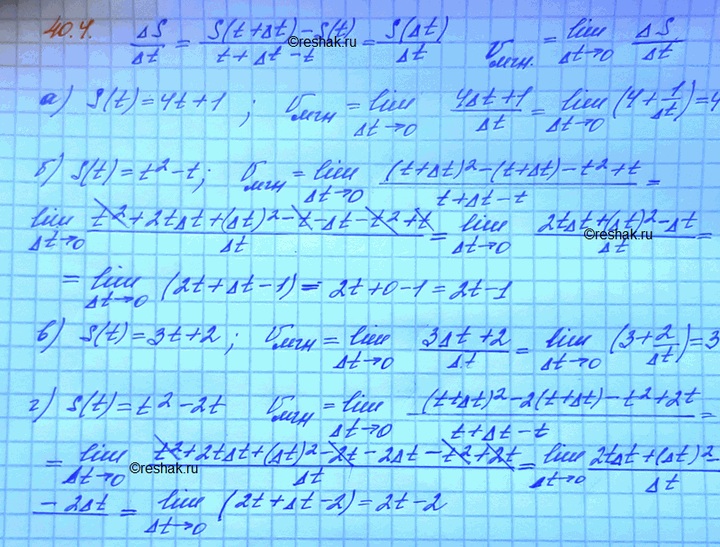 40.4. ΔS/Δt = (S(t+Δt)-S(t))/(t+Δt-t) = S(Δt)/Δt υмгн. = lim Δt→0 ΔS/Δt
©reshak.ru
а) S(t)=4t+1; υмгн = lim Δt→0 (4Δt+1)/Δt = lim Δt→0 (4+1/Δt)=4
б) S(t)=t²-t; υмгн = lim Δt→0 ((t+Δt)²-(t+Δt)-t²+t)/(t+Δt-t) =
lim Δt→0 (t²+2tΔt+(Δt)²-t-Δt-t²+t)/Δt = lim Δt→0 (2tΔt+(Δt)²-Δt)/Δt =
©reshak.ru
= lim Δt→0 (2t+Δt-1) = 2t+0-1=2t-1
в) S(t)=3t+2; υмгн = lim Δt→0 (3Δt+2)/Δt = lim Δt→0 (3+2/Δt)=3
г) S(t)=t²-2t υмгн = lim Δt→0 ((t+Δt)²-2(t+Δt)-t²+2t)/(t+Δt-t) =
= lim Δt→0 (t²+2tΔt+(Δt)²-2t-2Δt-t²+2t)/Δt = lim Δt→0 (2tΔt+(Δt)²-)/Δt
©reshak.ru
-2Δt = lim Δt→0 (2t+Δt-2)=2t-2